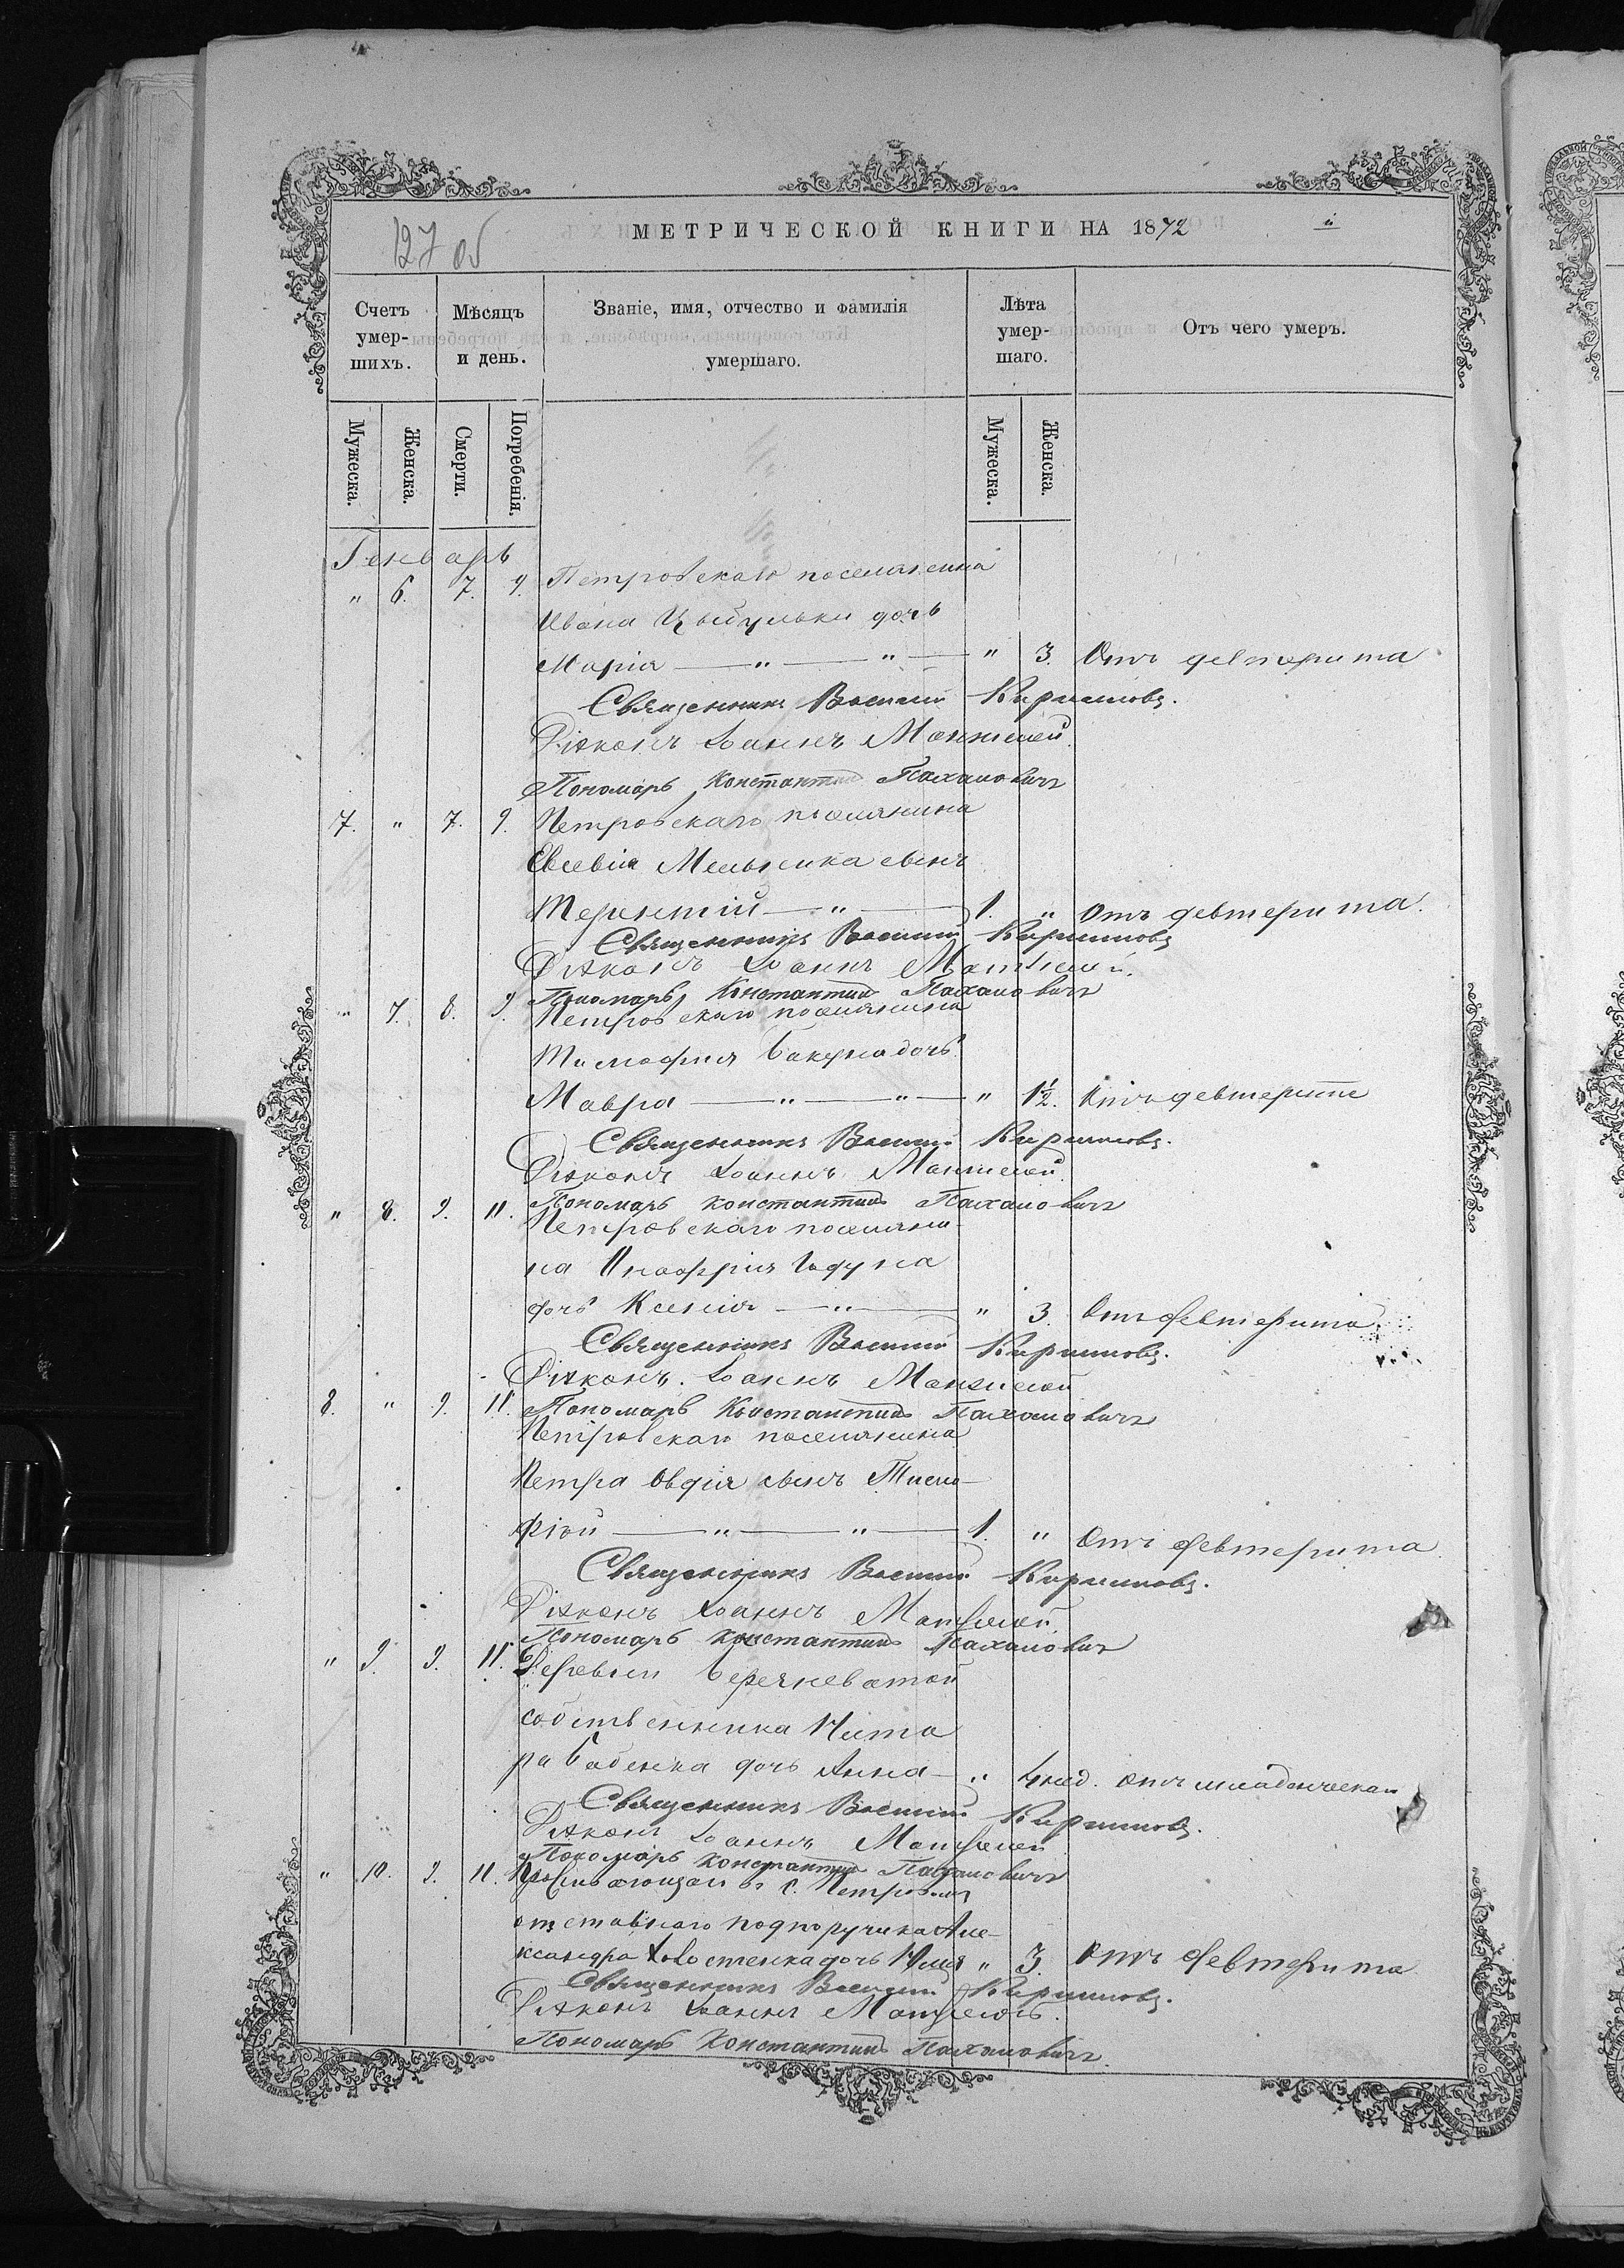 127 об
МЕТРИЧЕСКОЙ КНИГИ НА 1872
Счетъ умершихъ.
Мѣсяцъ и день.
Званіе, имя, отчество и фамилія умершаго.
Лѣта умершаго.
Отъ чего умеръ.
Мужеска. Женска. Смерти. Погребенія. Мужеска. Женска.
Генварь
" 6. 7. 9. Петровскаго поселянина
Ивана Цыбульки дочь
Марія — " — " — " 3. Отъ девтерита
Священникъ Василий Кириловъ.
Діаконъ Іоаннъ
Пономарь Константинъ Пахалович
7. " 7. 9. Петровскаго поселянина
Евсевія Мельника сынъ
Терентій — " — 1. " Отъ девтерита.
Священникъ Василий Кириловъ
Діаконъ Іоаннъ
Пономарь Константинъ Пахалович
" 7. 8. 9. Петровскаго поселянина
Тимофея Бакума дочь
Мавра — " — " — " 1½. Отъ девтерита
Священникъ Василий Кириловъ.
Діаконъ Іоаннъ
Пономарь Константинъ Пахалович
" 8. 9. 11. Петровскаго поселяни-
на Онофрія Гадуна
дочь Ксенія — " — " 3. Отъ девтерита.
Священникъ Василий Кириловъ.
Діаконъ Іоаннъ
Пономарь Константинъ Пахалович
8. " 9. 11. Петровскаго поселянина
Петра Овдія сынъ Тимо-
фій — " — " — 1. " Отъ девтерита
Священникъ Василий Кириловъ.
Діаконъ Іоаннъ
Пономарь Константинъ Пахалович
" 9. 9. 11. Деревни Веречневатой
собственника
Бабенка дочь Анна — " 4 нед. отъ младенческой
Священникъ Василий Кириловъ.
Діаконъ Іоаннъ
Пономарь Константинъ Пахалович
" 10. 9. 11. Проживающаго въ с. Петровки
отставнаго подпоручика Але-
ксандра дочь Юлія " 3. Отъ девтерита
Священникъ Василий Кириловъ.
Діаконъ Іоаннъ
Пономарь Константинъ Пахалович